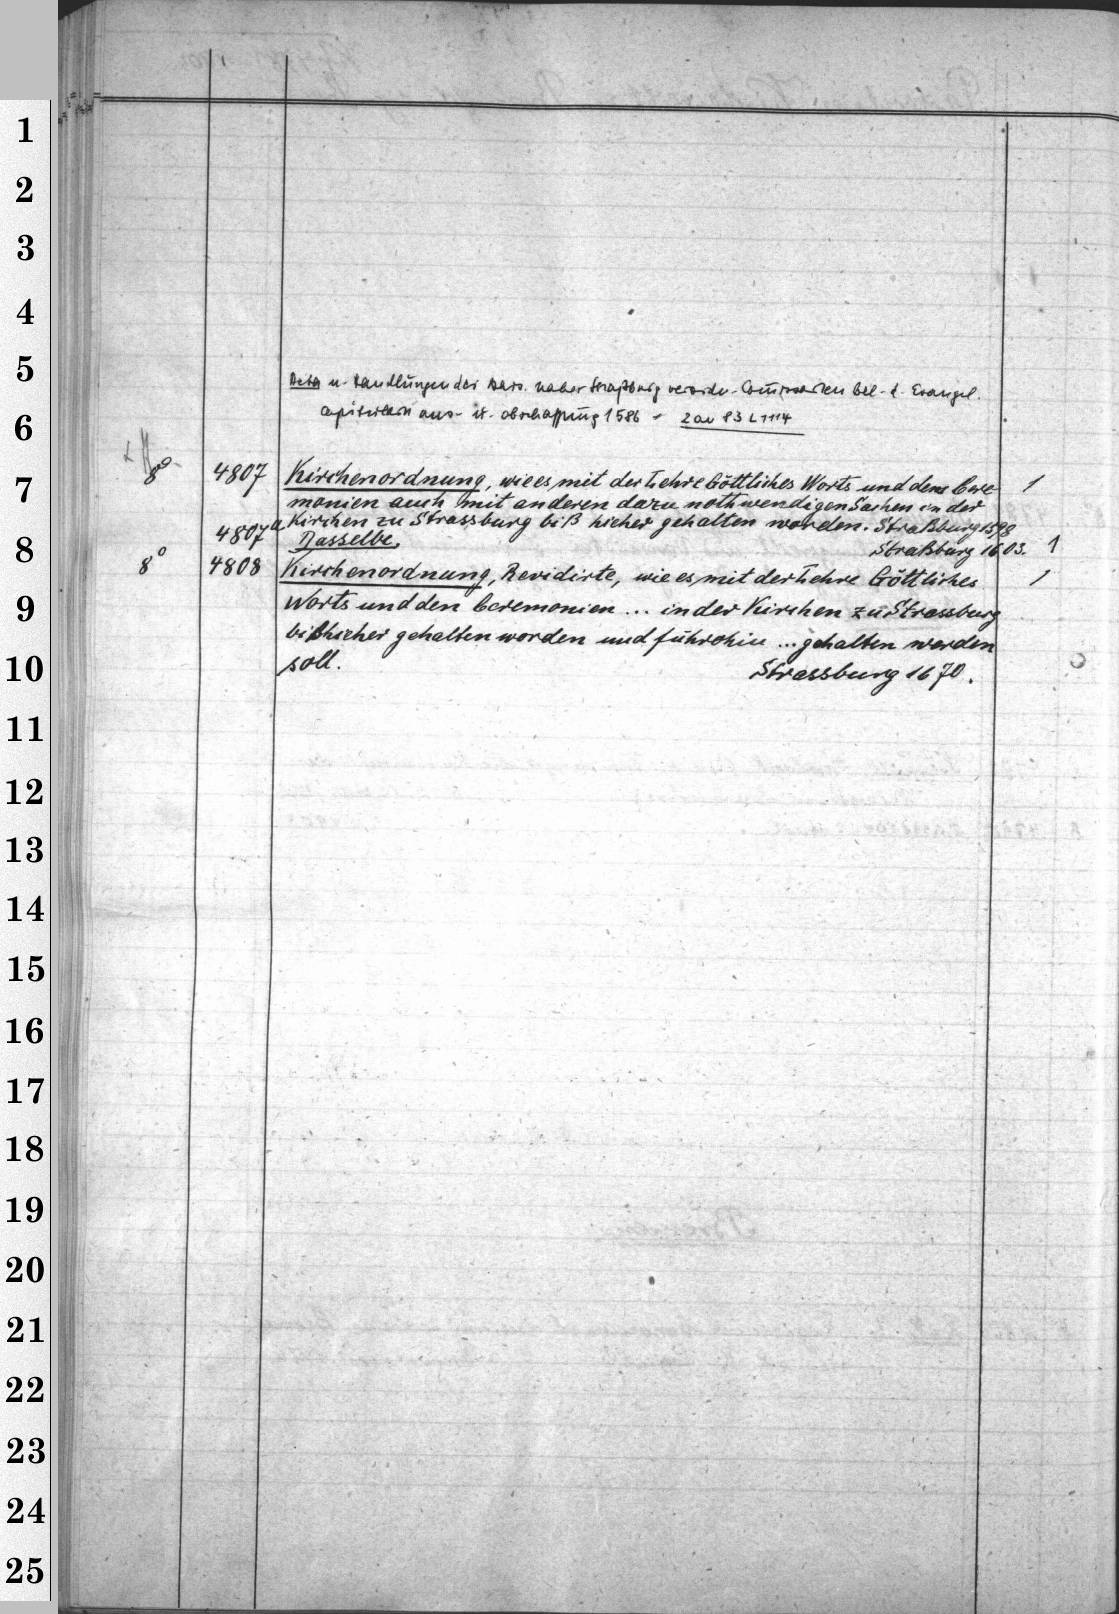 1
2
3
4
5
Acta u. Handlungen der Kays. naher Straßburg verordn. Commissarien bel. d. Evangel.
6
aus- u. abschaffung 1586 - 2 an P3 L 1114
8° 4807 Kirchenordnung, wie es mit der Lehre Göttliches Worts und denn Cere- 1
7
monien auch mit anderen dazu nothwendigen Sachen in der
Kirchen zu Strassburg biß hieher gehalten worden. Straßburg 1598
8
4807a Dasselbe. Straßburg 1603. 1
8° 4808 Kirchenordnung, Revidirte, wie es mit der Lehre Göttliches 1
9
Worts und den Ceremonien ... in der Kirchen zu Strassburg
bißhieher gehalten worden und führohin ... gehalten werden
10
soll. Strassburg 1670.
11
12
13
14
15
16
17
18
19
20
21
22
23
24
25